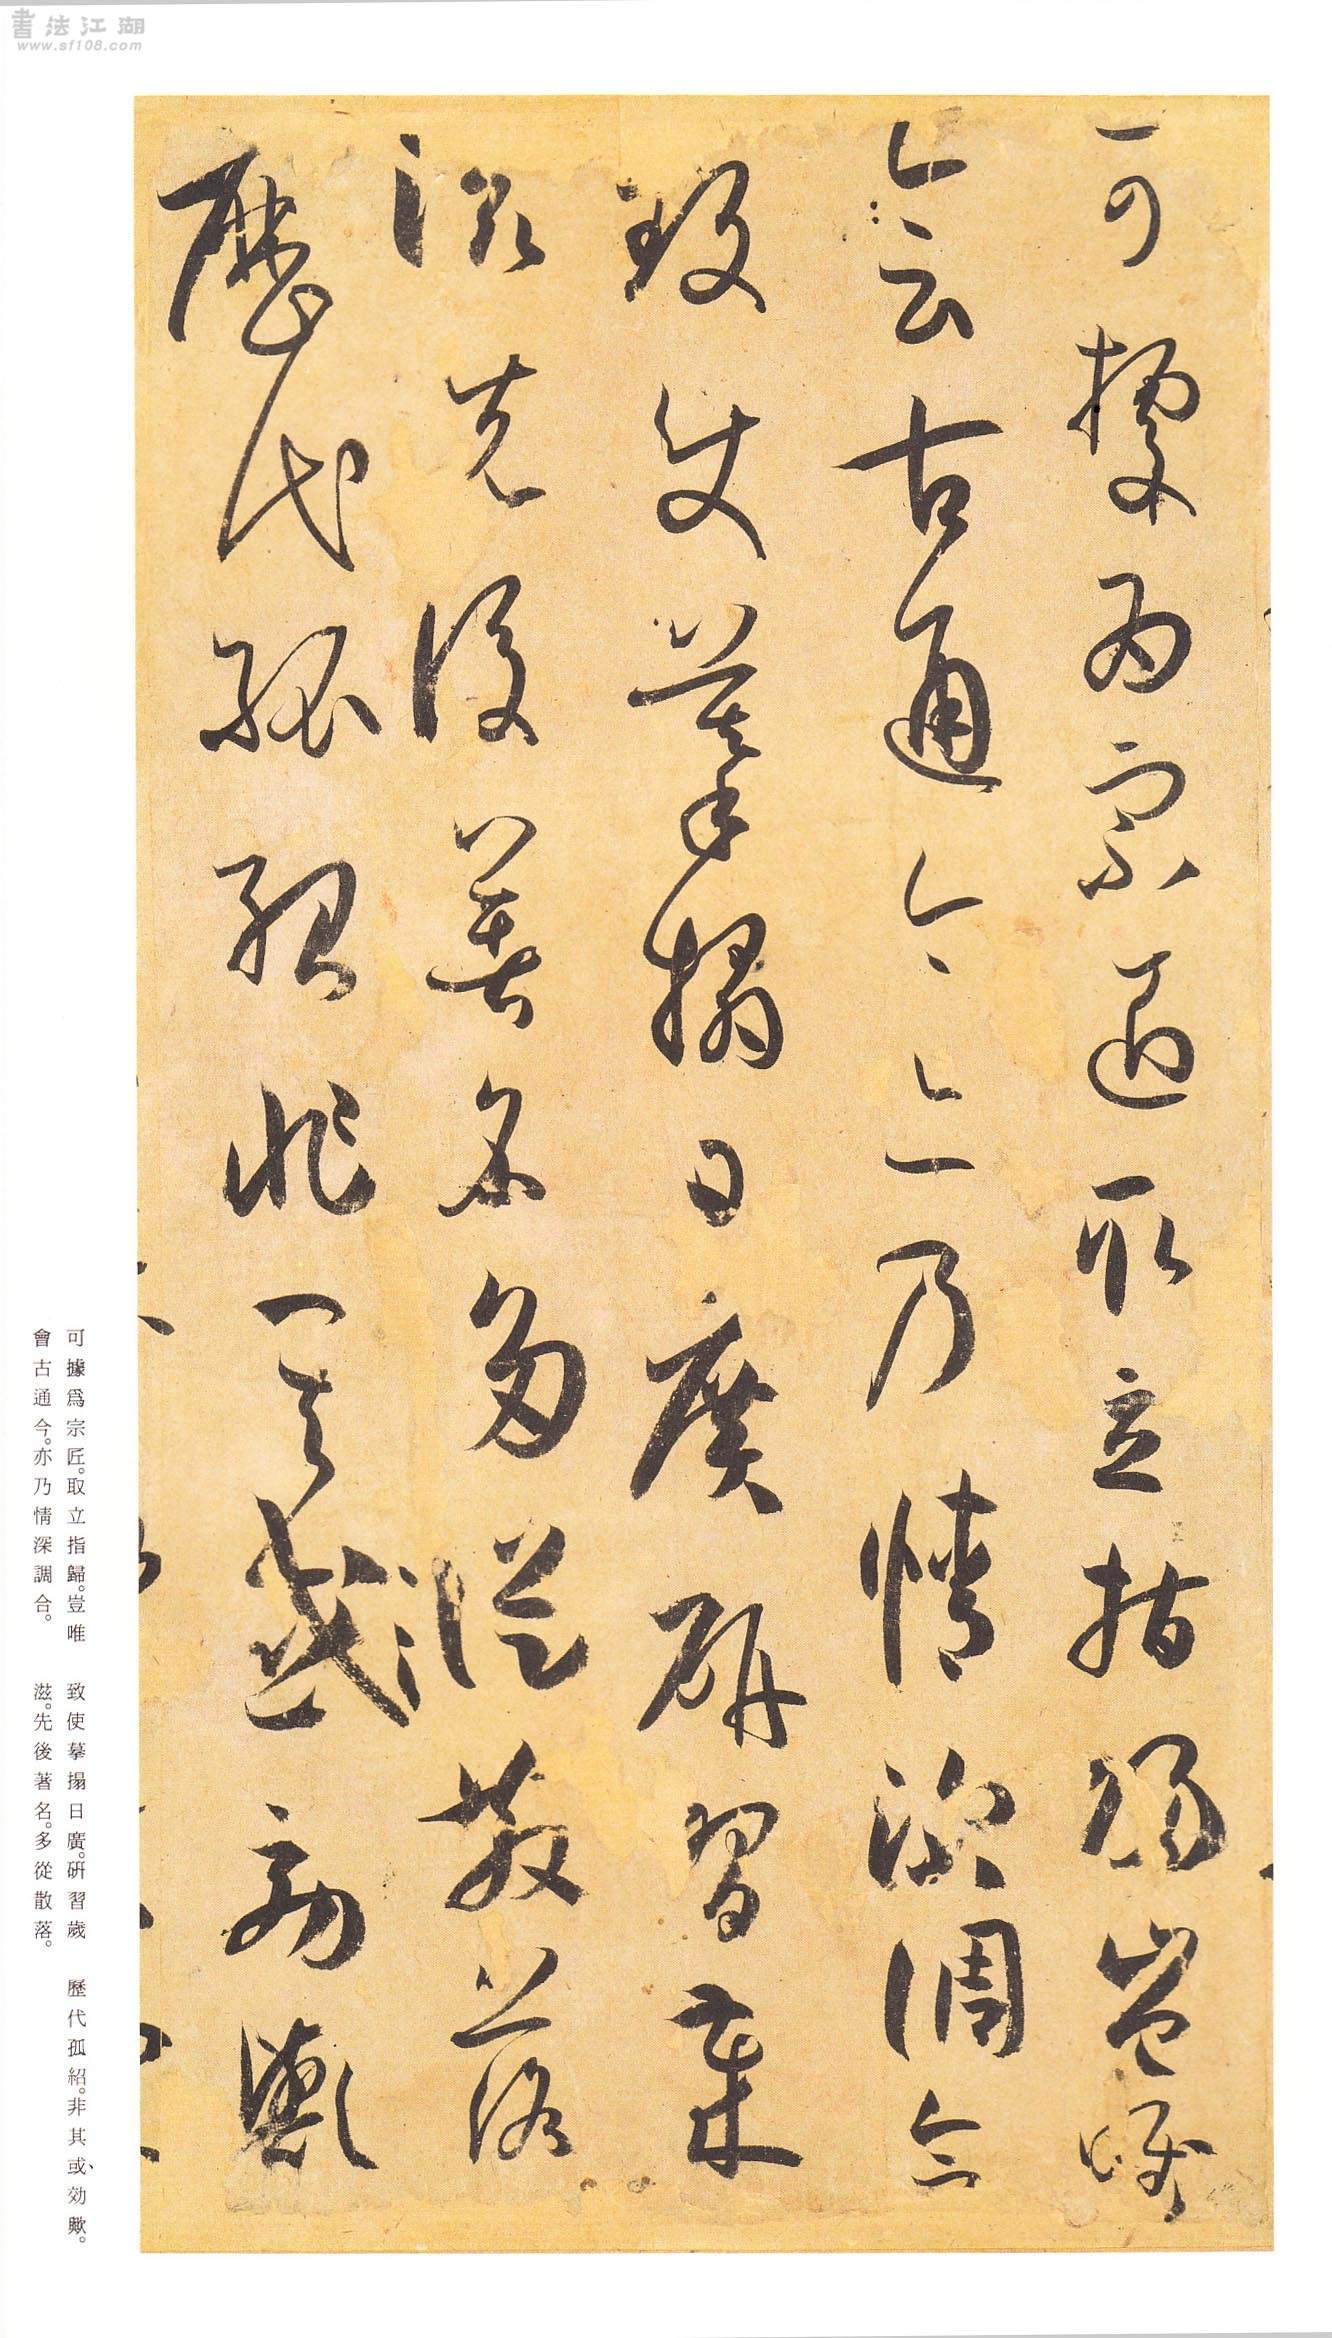 書法江湖
www.sf108.com
可據爲宗匠取立指歸豈唯
會古通今亦乃情深調合
致使摹搨日廣硏習歲
滋先後著名多從散落
歷代孤紹非其或効歟
可據爲宗匠。取立指歸。豈唯
會古通今。亦乃情深調合。
致使摹搨日廣。硏習歲
滋。先後著名。多從散落。
歷代孤紹。非其或、効歟。